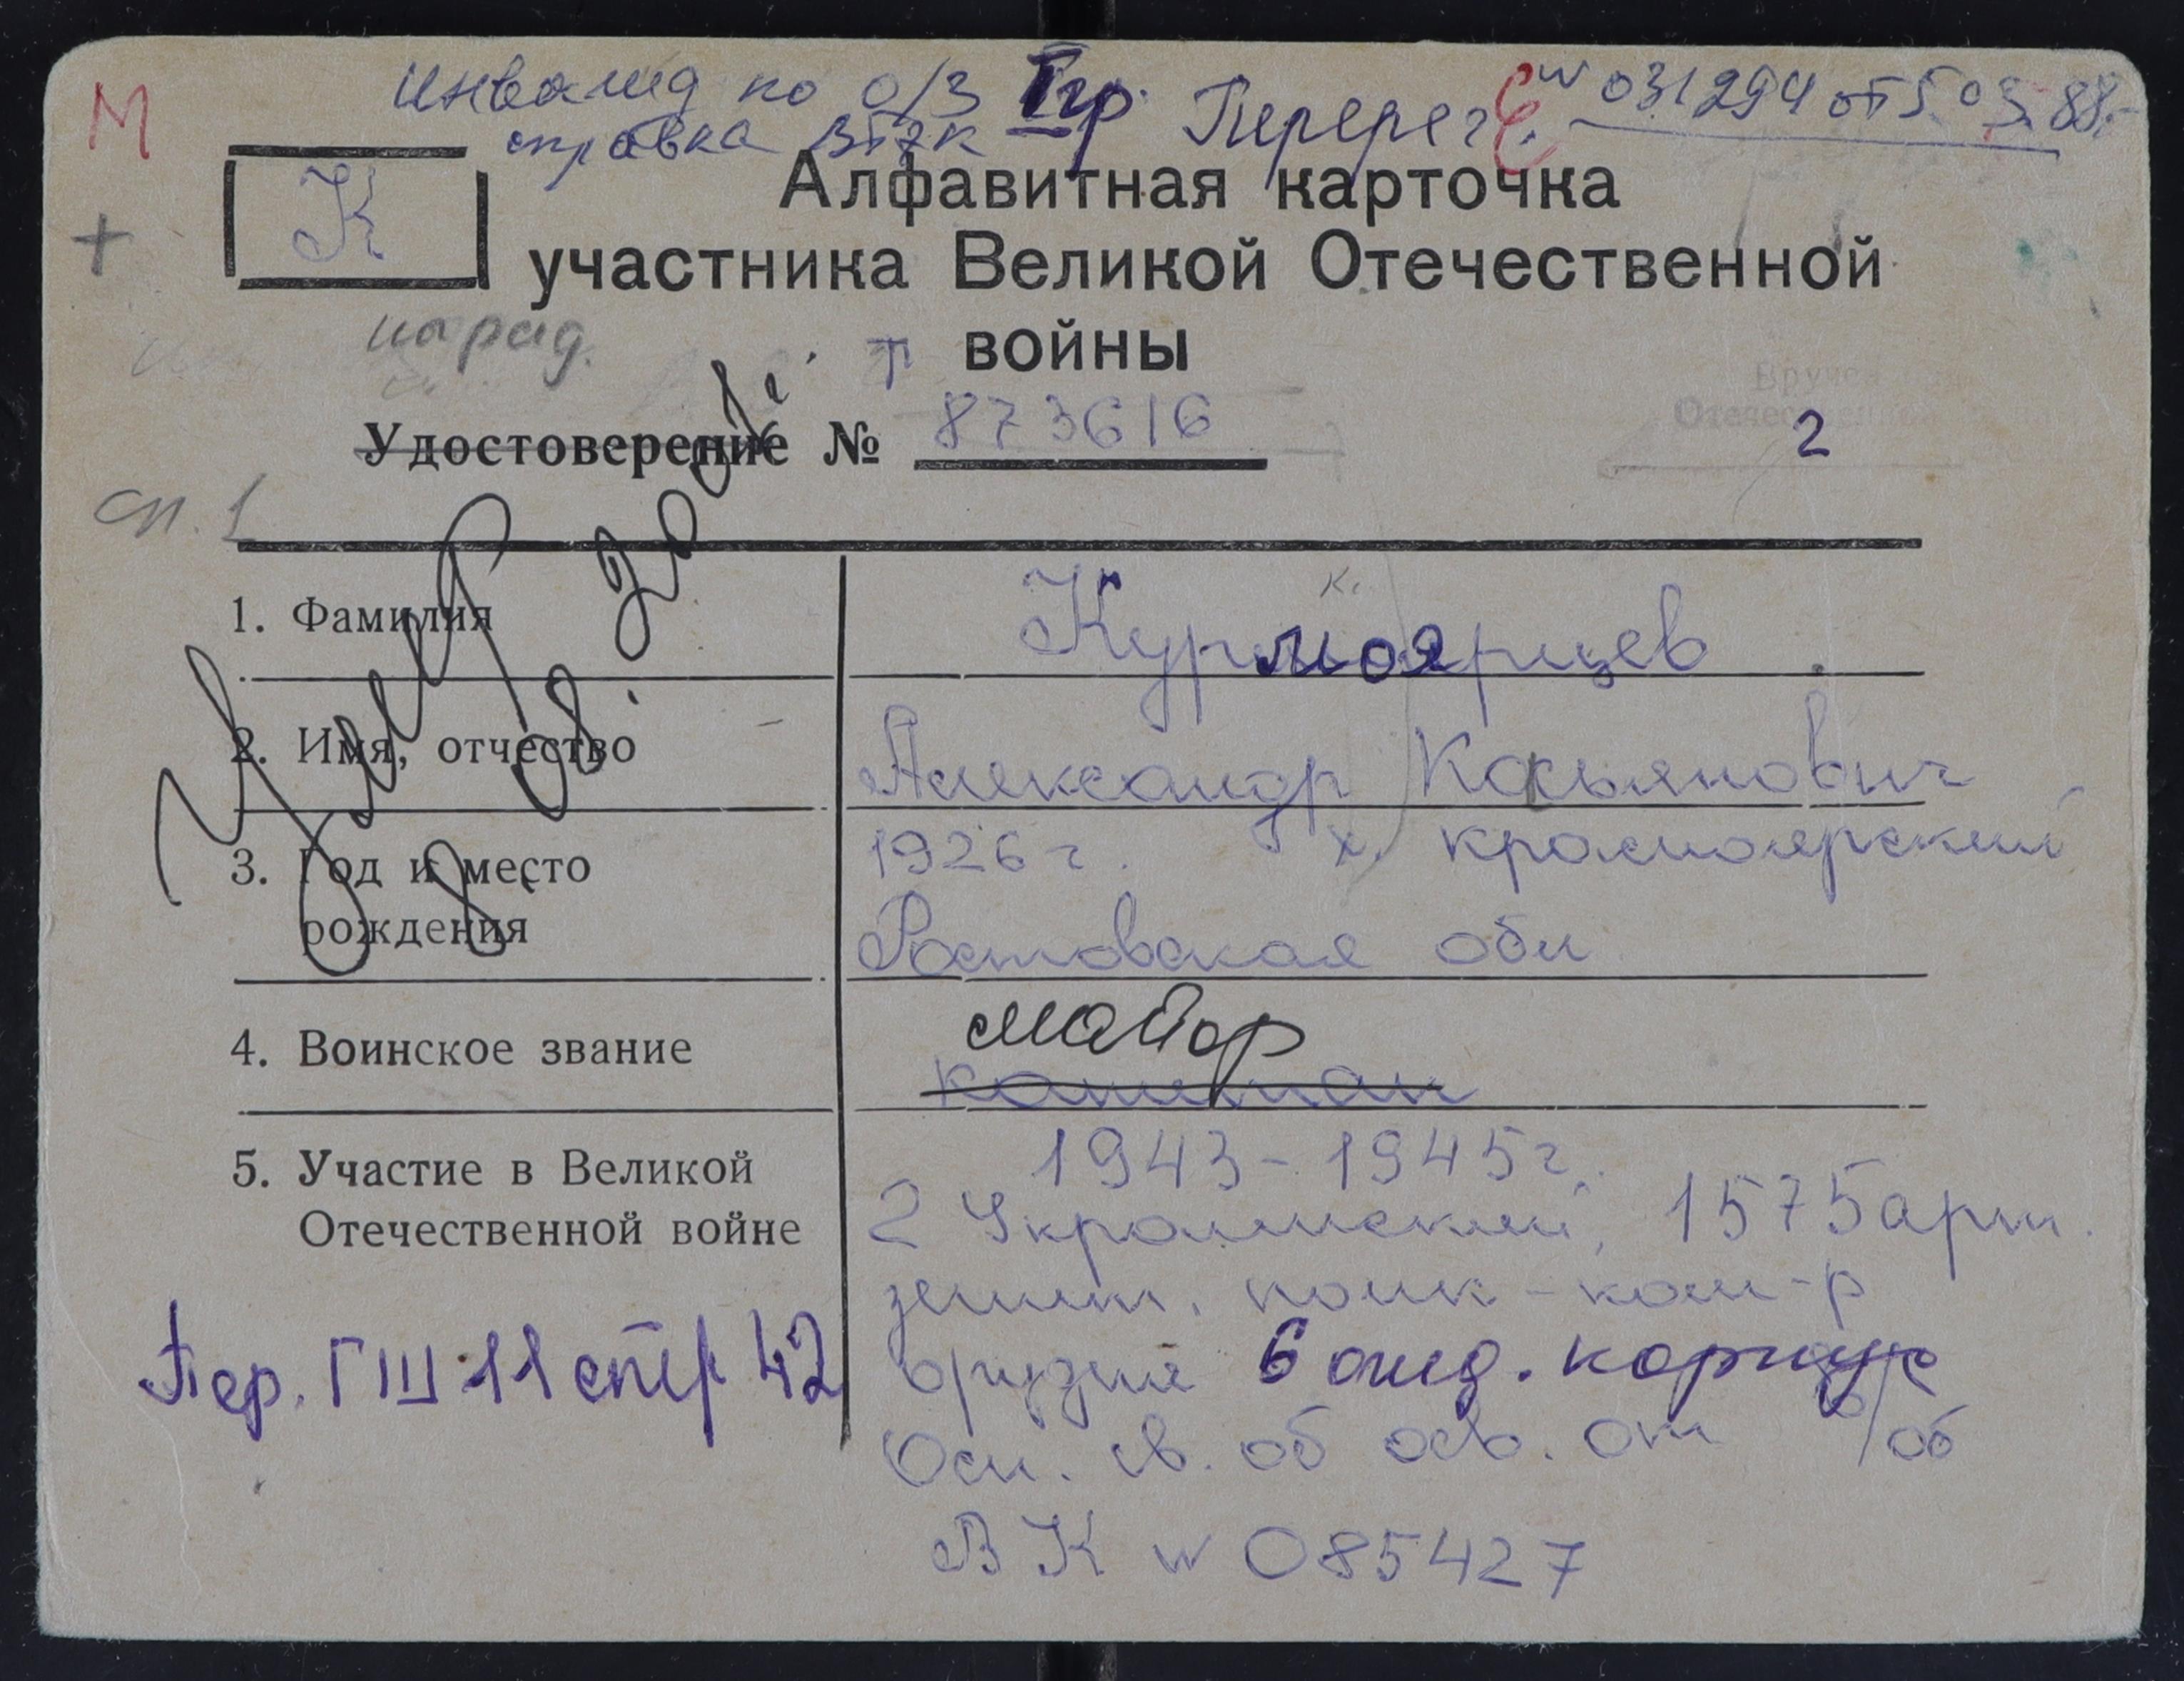 М
Инвалид по о/з I гр. Перерег. № 031294 от 5.05.88.
справка ВТЭК
К
+
Алфавитная карточка
участника Великой Отечественной
войны
парад.
Т
Удостоверение № 873616
2
сп. 1
Умер 8. 08. 2001г.
1. Фамилия
Курмоярцев
2. Имя, отчество
Александр Касьянович
3. Год и место
рождения
1926 г. х. Красноярский
Ростовская обл
4. Воинское звание
майор
капитан
5. Участие в Великой
Отечественной войне
1943-1945г.
2 Украинский, 1575 арт.
зенит. полк - ком-р
орудия 6 отд. корпус
Осн. св. об осв. от в/об
ВК № 085427
Пер. ГШ 11 стр 42